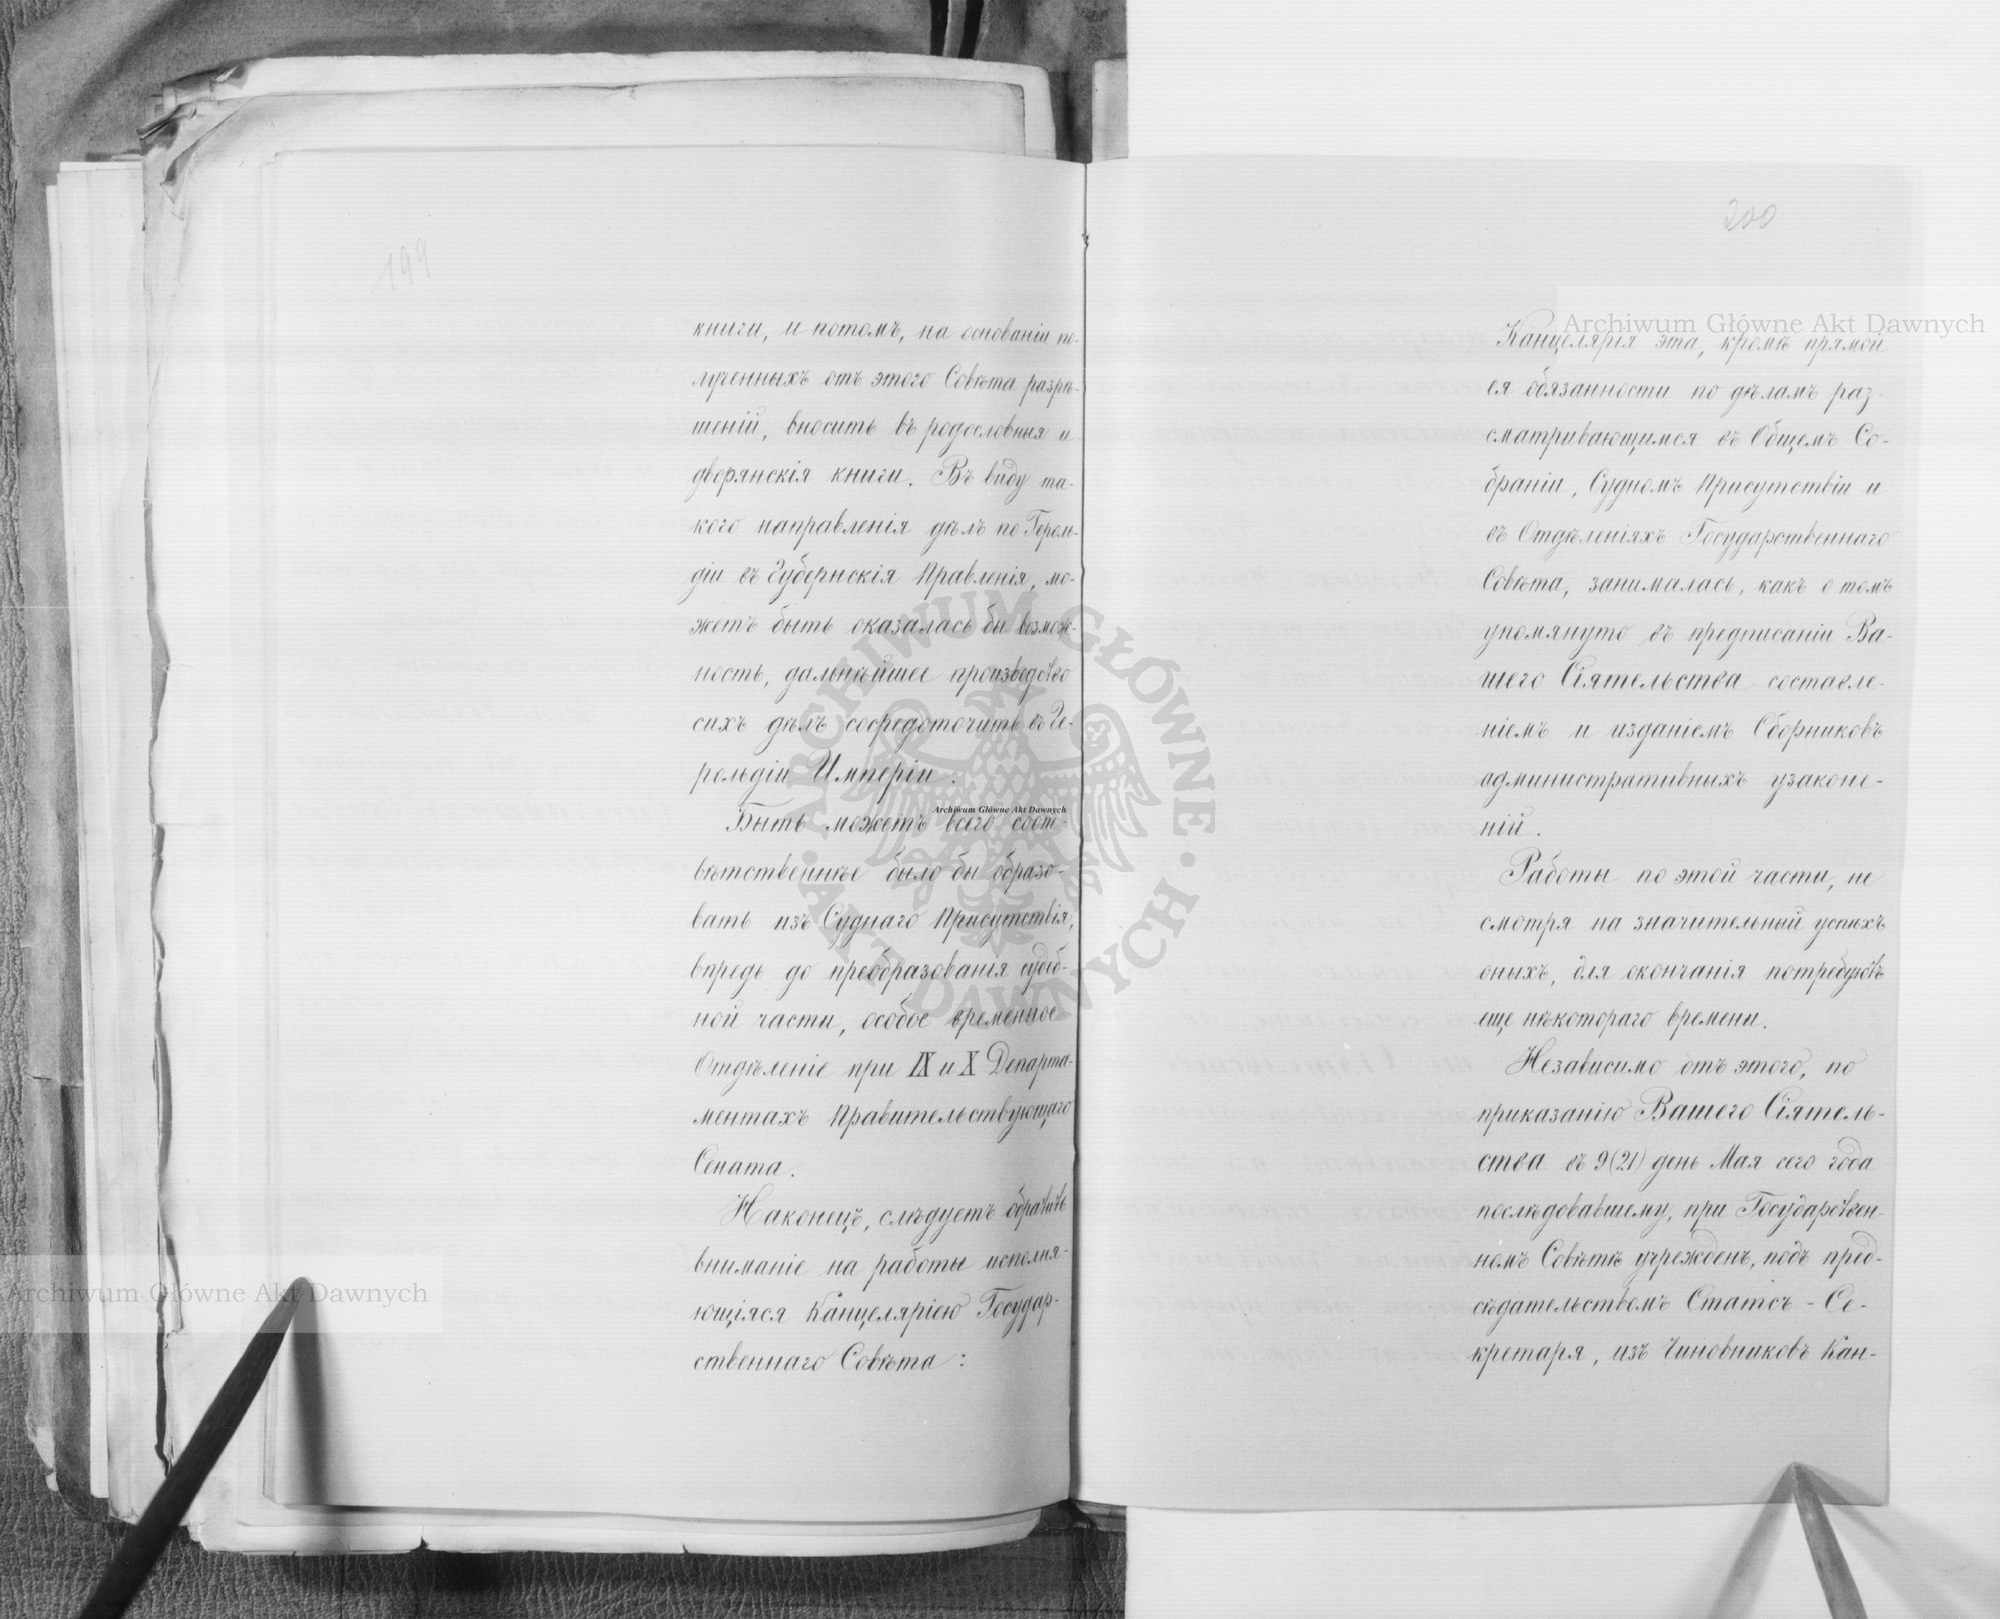 199
книги, и потомъ, на основаніи по-
лученныхъ отъ этого Совѣта разрѣ-
шеній, вносить въ родословныя и
дворянскія книги. Въ виду та-
кого направленія дѣлъ по Героль-
діи въ Губернскія Правленія, мо-
жетъ быть оказалась бы возмож-
ность, дальнѣйшее производство
сихъ дѣлъ сосредоточить въ Ге-
рольдіи Имперіи.
Быть можетъ всего соот-
вѣтственнѣе было бы образо-
вать изъ Суднаго Присутствія,
впредь до преобразованія судеб-
ной части, особое временное
Отдѣленіе при IX и X Департа-
ментахъ Правительствующаго
Сената.
Наконецъ, слѣдуетъ обратить
вниманіе на работы исполня-
ющіяся Канцеляріею Государ-
ственнаго Совѣта:
200
Канцелярія эта, кромѣ прямой
ея обязанности по дѣламъ раз-
сматривающимся въ Общемъ Со-
браніи, Судномъ Присутствіи и
въ Отдѣленіяхъ Государственнаго
Совѣта, занималась, какъ о томъ
упомянуто въ предписаніи Ва-
шего Сіятельства составле-
ніемъ и изданіемъ Сборниковъ
административныхъ узаконе-
ній.
Работы по этой части, не
смотря на значительный успѣхъ
оныхъ, для окончанія потребуютъ
еще нѣкотораго времени.
Независимо отъ этого, по
приказанію Вашего Сіятель-
ства въ 9(21) день Мая сего года
послѣдовавшему, при Государствен-
номъ Совѣтѣ учрежденъ, подъ пред-
сѣдательствомъ Статсъ-Се-
кретаря, изъ Чиновниковъ Кан-
Archiwum Główne Akt Dawnych
Archiwum Główne Akt Dawnych
Archiwum Główne Akt Dawnych
ARCHIWUM GŁÓWNE AKT DAWNYCH